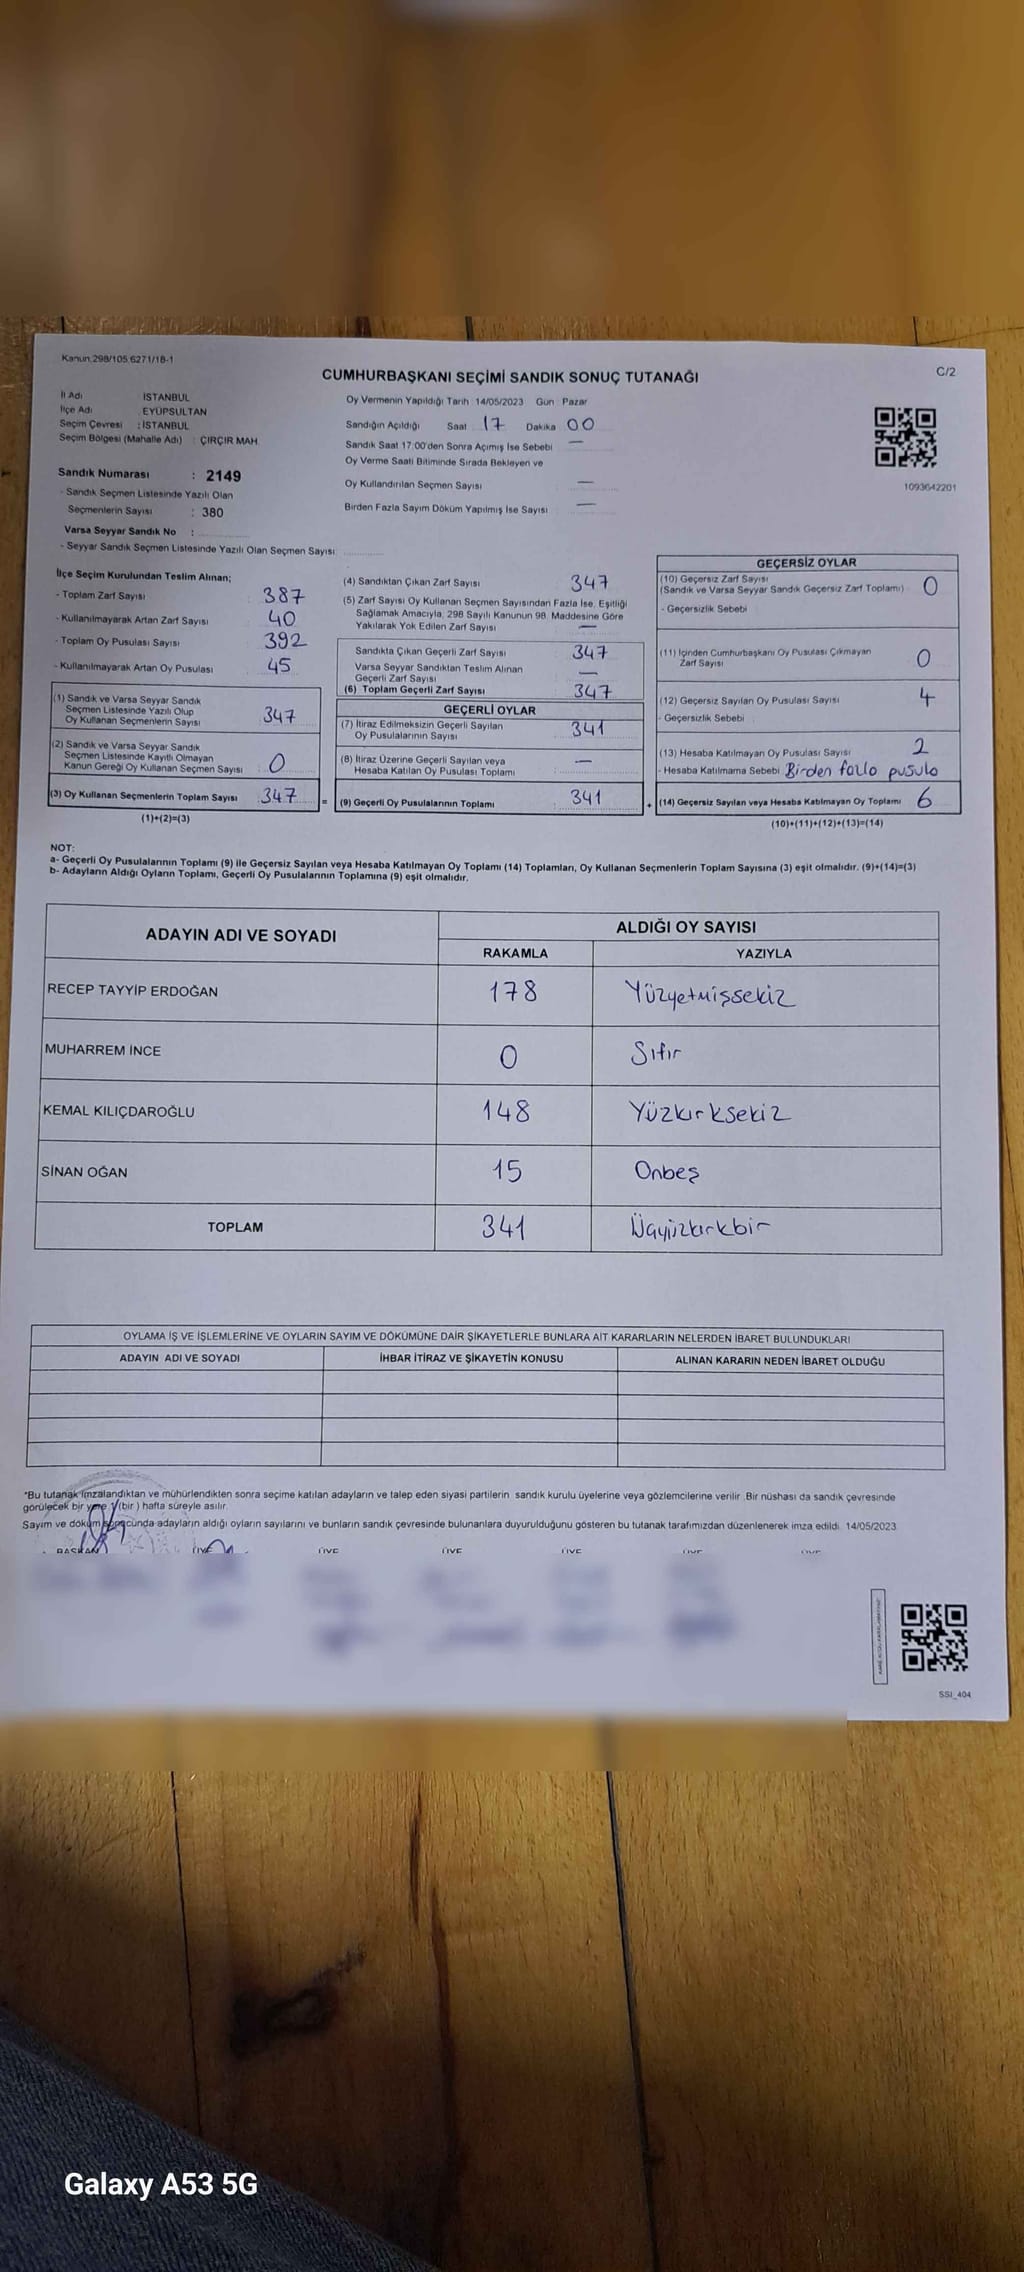 Kanun 298/105 6271/18-1
CUMHURBAŞKANI SEÇİMİ SANDIK SONUÇ TUTANAĞI
C/2
İl Adı İSTANBUL
İlçe Adı EYÜPSULTAN
Seçim Çevresi : İSTANBUL
Seçim Bölgesi (Mahalle Adı) : ÇIRÇIR MAH
Sandık Numarası : 2149
- Sandık Seçmen Listesinde Yazılı Olan
Seçmenlerin Sayısı : 380
Varsa Seyyar Sandık No :
- Seyyar Sandık Seçmen Listesinde Yazılı Olan Seçmen Sayısı:
Oy Vermenin Yapıldığı Tarih 14/05/2023 Gün Pazar
Sandığın Açıldığı Saat 17 Dakika 00
Sandık Saat 17:00'den Sonra Açımış İse Sebebi —
Oy Verme Saati Bitiminde Sırada Bekleyen ve
Oy Kullandırılan Seçmen Sayısı —
Birden Fazla Sayım Döküm Yapılmış İse Sayısı —
1093642201
İlçe Seçim Kurulundan Teslim Alınan;
- Toplam Zarf Sayısı 387
- Kullanılmayarak Artan Zarf Sayısı 40
- Toplam Oy Pusulası Sayısı 392
- Kullanılmayarak Artan Oy Pusulası 45
(1) Sandık ve Varsa Seyyar Sandık
Seçmen Listesinde Yazılı Olup
Oy Kullanan Seçmenlerin Sayısı 347
(2) Sandık ve Varsa Seyyar Sandık
Seçmen Listesinde Kayıtlı Olmayan
Kanun Gereği Oy Kullanan Seçmen Sayısı 0
(3) Oy Kullanan Seçmenlerin Toplam Sayısı 347 =
(1)+(2)=(3)
(4) Sandıktan Çıkan Zarf Sayısı 347
(5) Zarf Sayısı Oy Kullanan Seçmen Sayısından Fazla İse, Eşitliği
Sağlamak Amacıyla, 298 Sayılı Kanunun 98. Maddesine Göre
Yakılarak Yok Edilen Zarf Sayısı —
Sandıkta Çıkan Geçerli Zarf Sayısı 347
Varsa Seyyar Sandıktan Teslim Alınan
Geçerli Zarf Sayısı —
(6) Toplam Geçerli Zarf Sayısı 347
GEÇERLİ OYLAR
(7) İtiraz Edilmeksizin Geçerli Sayılan
Oy Pusulalarının Sayısı 341
(8) İtiraz Üzerine Geçerli Sayılan veya
Hesaba Katılan Oy Pusulası Toplamı —
(9) Geçerli Oy Pusulalarının Toplamı 341 +
GEÇERSİZ OYLAR
(10) Geçersiz Zarf Sayısı
(Sandık ve Varsa Seyyar Sandık Geçersiz Zarf Toplamı) 0
- Geçersizlik Sebebi
(11) İçinden Cumhurbaşkanı Oy Pusulası Çıkmayan
Zarf Sayısı 0
(12) Geçersiz Sayılan Oy Pusulası Sayısı 4
- Geçersizlik Sebebi
(13) Hesaba Katılmayan Oy Pusulası Sayısı 2
- Hesaba Katılmama Sebebi Birden fazla pusula
(14) Geçersiz Sayılan veya Hesaba Katılmayan Oy Toplamı 6
(10)+(11)+(12)+(13)=(14)
NOT:
a- Geçerli Oy Pusulalarının Toplamı (9) ile Geçersiz Sayılan veya Hesaba Katılmayan Oy Toplamı (14) Toplamları, Oy Kullanan Seçmenlerin Toplam Sayısına (3) eşit olmalıdır. (9)+(14)=(3)
b- Adayların Aldığı Oyların Toplamı, Geçerli Oy Pusulalarının Toplamına (9) eşit olmalıdır.
ADAYIN ADI VE SOYADI
ALDIĞI OY SAYISI
RAKAMLA YAZIYLA
RECEP TAYYİP ERDOĞAN 178 Yüzyetmişsekiz
MUHARREM İNCE 0 Sıfır
KEMAL KILIÇDAROĞLU 148 Yüzkırksekiz
SİNAN OĞAN 15 Onbeş
TOPLAM 341 Üçyüzkırkbir
OYLAMA İŞ VE İŞLEMLERİNE VE OYLARIN SAYIM VE DÖKÜMÜNE DAİR ŞİKAYETLERLE BUNLARA AİT KARARLARIN NELERDEN İBARET BULUNDUKLARI
ADAYIN ADI VE SOYADI İHBAR İTİRAZ VE ŞİKAYETİN KONUSU ALINAN KARARIN NEDEN İBARET OLDUĞU
*Bu tutanak imzalandıktan ve mühürlendikten sonra seçime katılan adayların ve talep eden siyasi partilerin sandık kurulu üyelerine veya gözlemcilerine verilir. Bir nüshası da sandık çevresinde
görülecek bir yere 1 (bir) hafta süreyle asılır.
Sayım ve döküm sonucunda adayların aldığı oyların sayılarını ve bunların sandık çevresinde bulunanlara duyurulduğunu gösteren bu tutanak tarafımızdan düzenlenerek imza edildi. 14/05/2023
BAŞKAN ÜYE ÜYE ÜYE ÜYE ÜYE ÜYE
SSI_404
Galaxy A53 5G